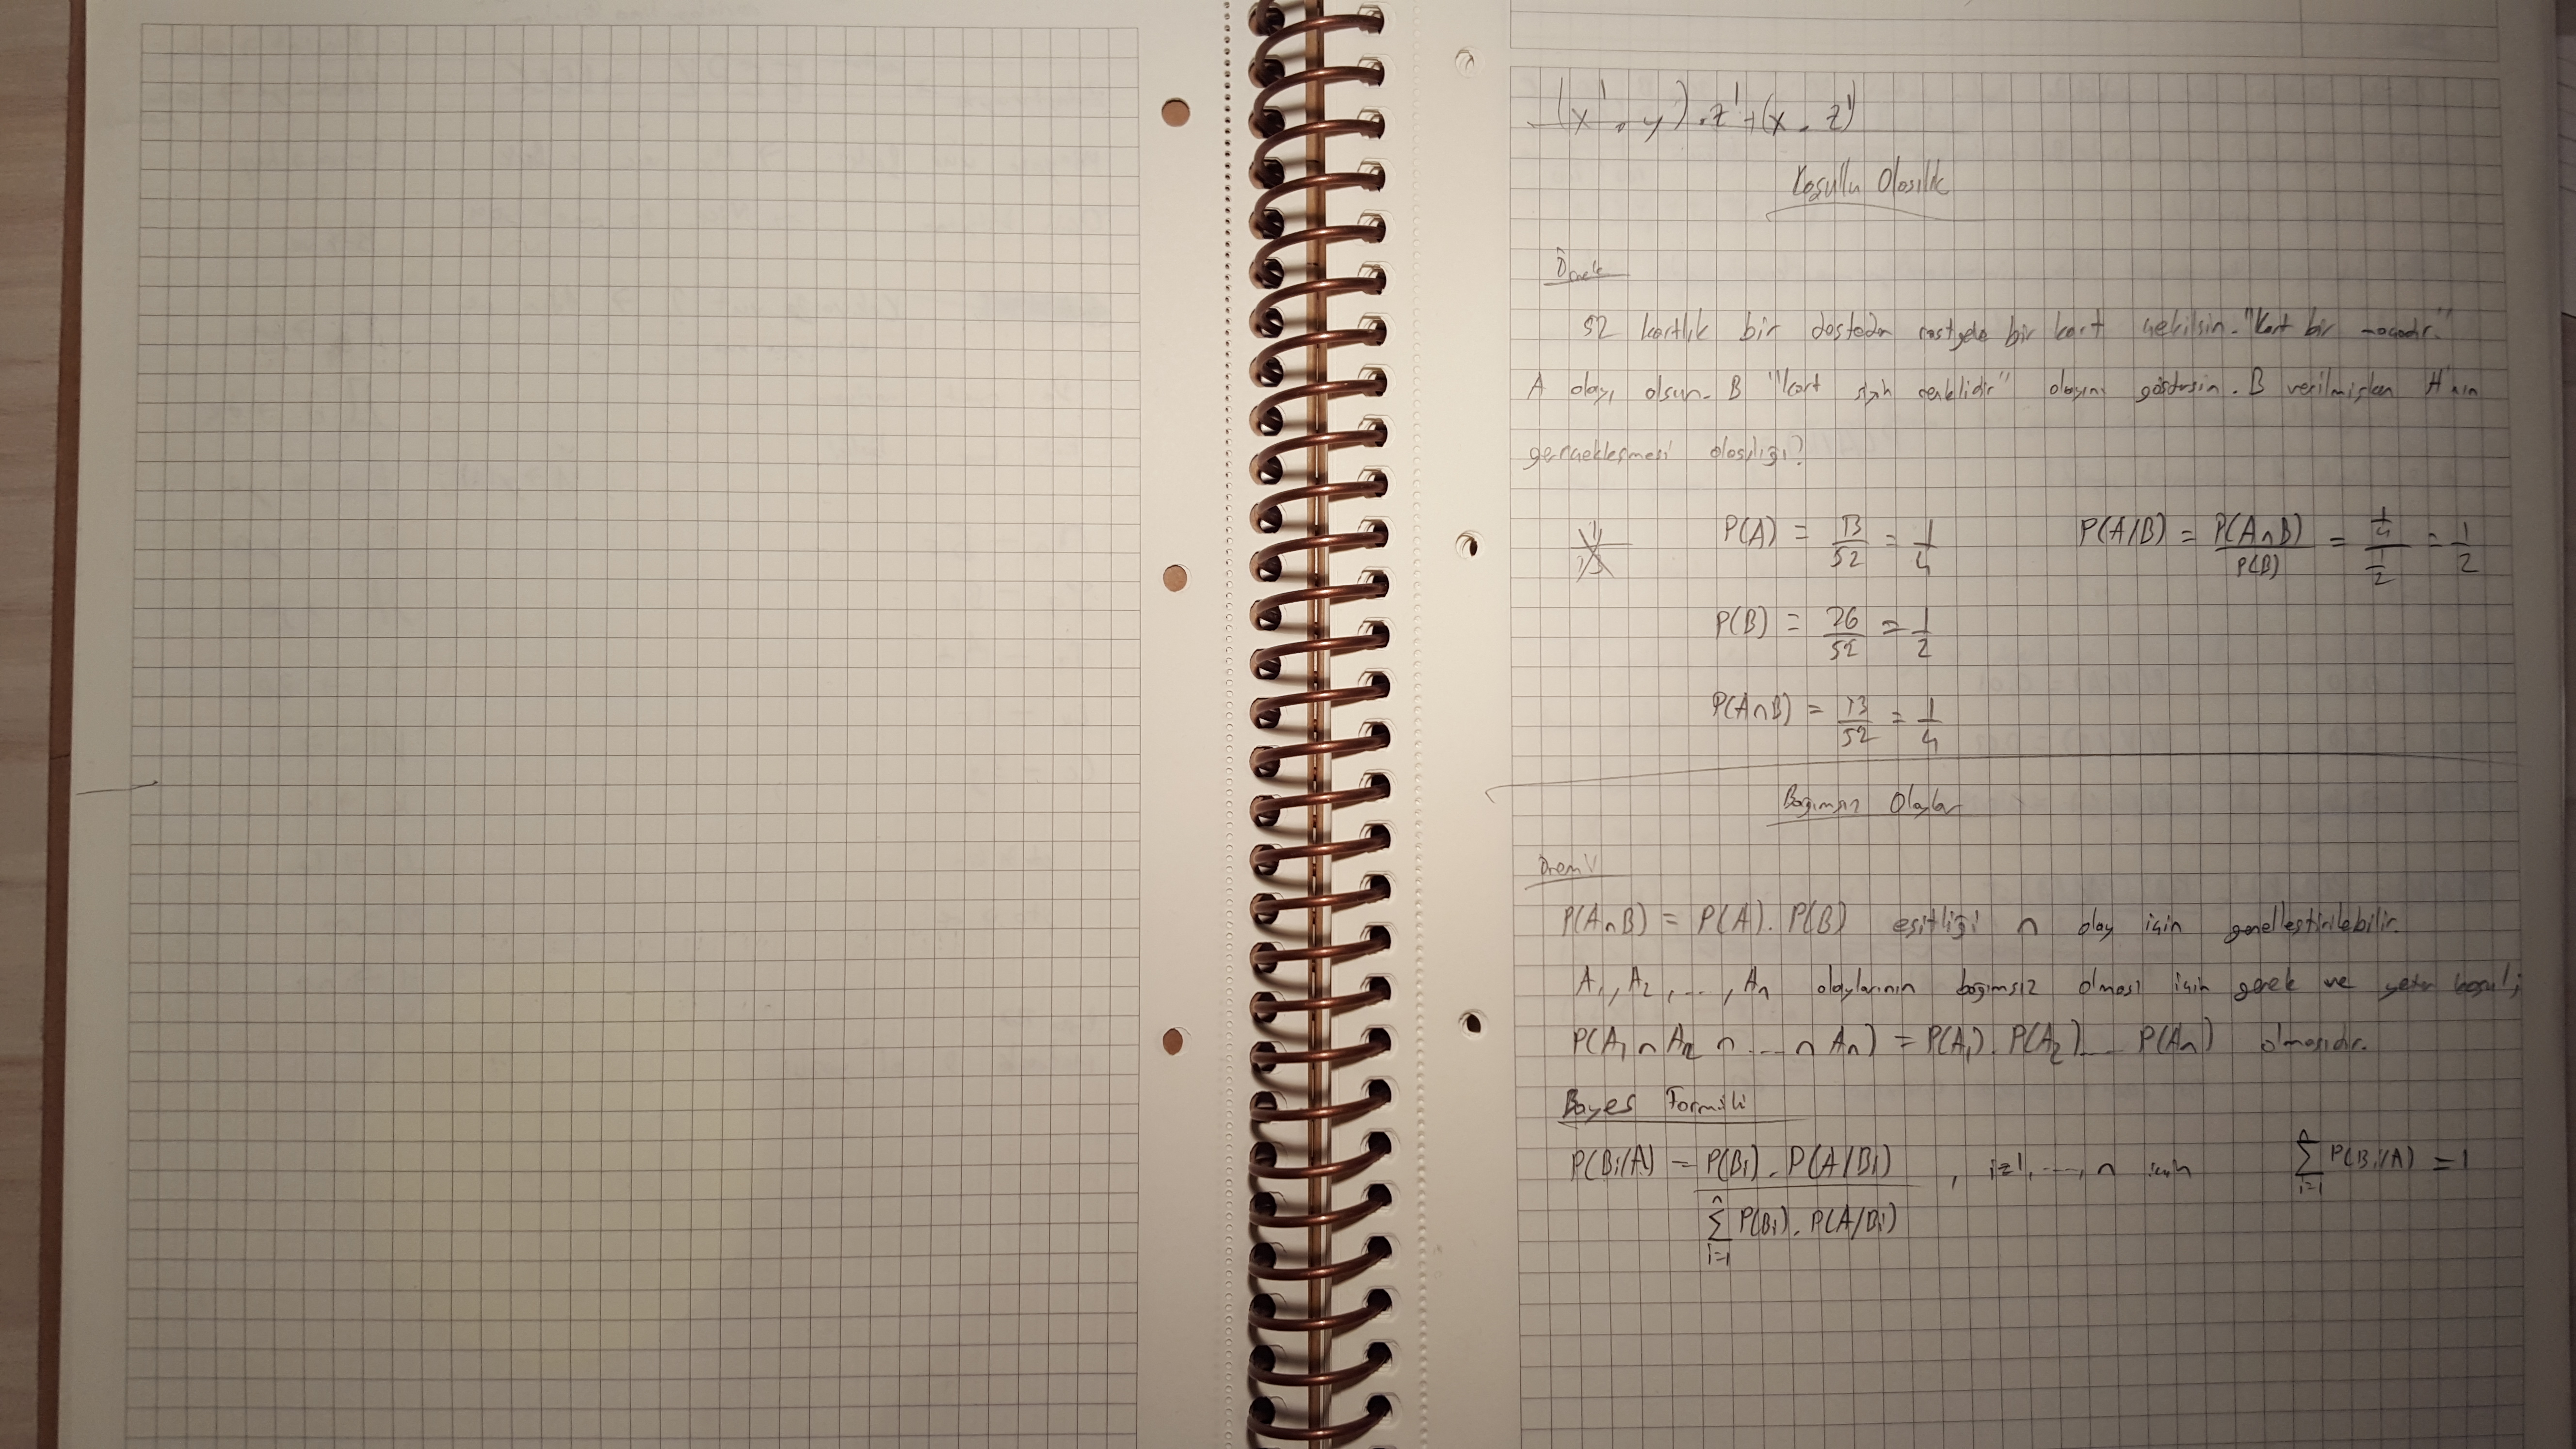 (x' . y) . z' + (x . z')
Koşullu Olasılık
Örnek
52 kartlık bir desteden rastgele bir kart çekilsin. "Kart bir maçadır."
A olayı olsun. B "kart siyah renklidir" olayını göstersin. B verilmişken A'nın
gerçekleşmesi olasılığı?
P(A) = 13/52 = 1/4
P(A/B) = P(A∩B)/P(B) = (1/4)/(1/2) = 1/2
P(B) = 26/52 = 1/2
P(A∩B) = 13/52 = 1/4
Bağımsız Olaylar
P(A∩B) = P(A) . P(B) eşitliği n olay için genelleştirilebilir.
A₁, A₂, ..., Aₙ olaylarının bağımsız olması için gerek ve yeter koşul;
P(A₁ ∩ A₂ ∩ ... ∩ Aₙ) = P(A₁) . P(A₂) ... P(Aₙ) olmasıdır.
Bayes Formülü
P(Bi/A) = P(Bi) . P(A/Bi) / ∑ⁿᵢ₌₁ P(Bi) . P(A/Bi) , i=1, ..., n için ∑ⁿᵢ₌₁ P(Bi/A) = 1